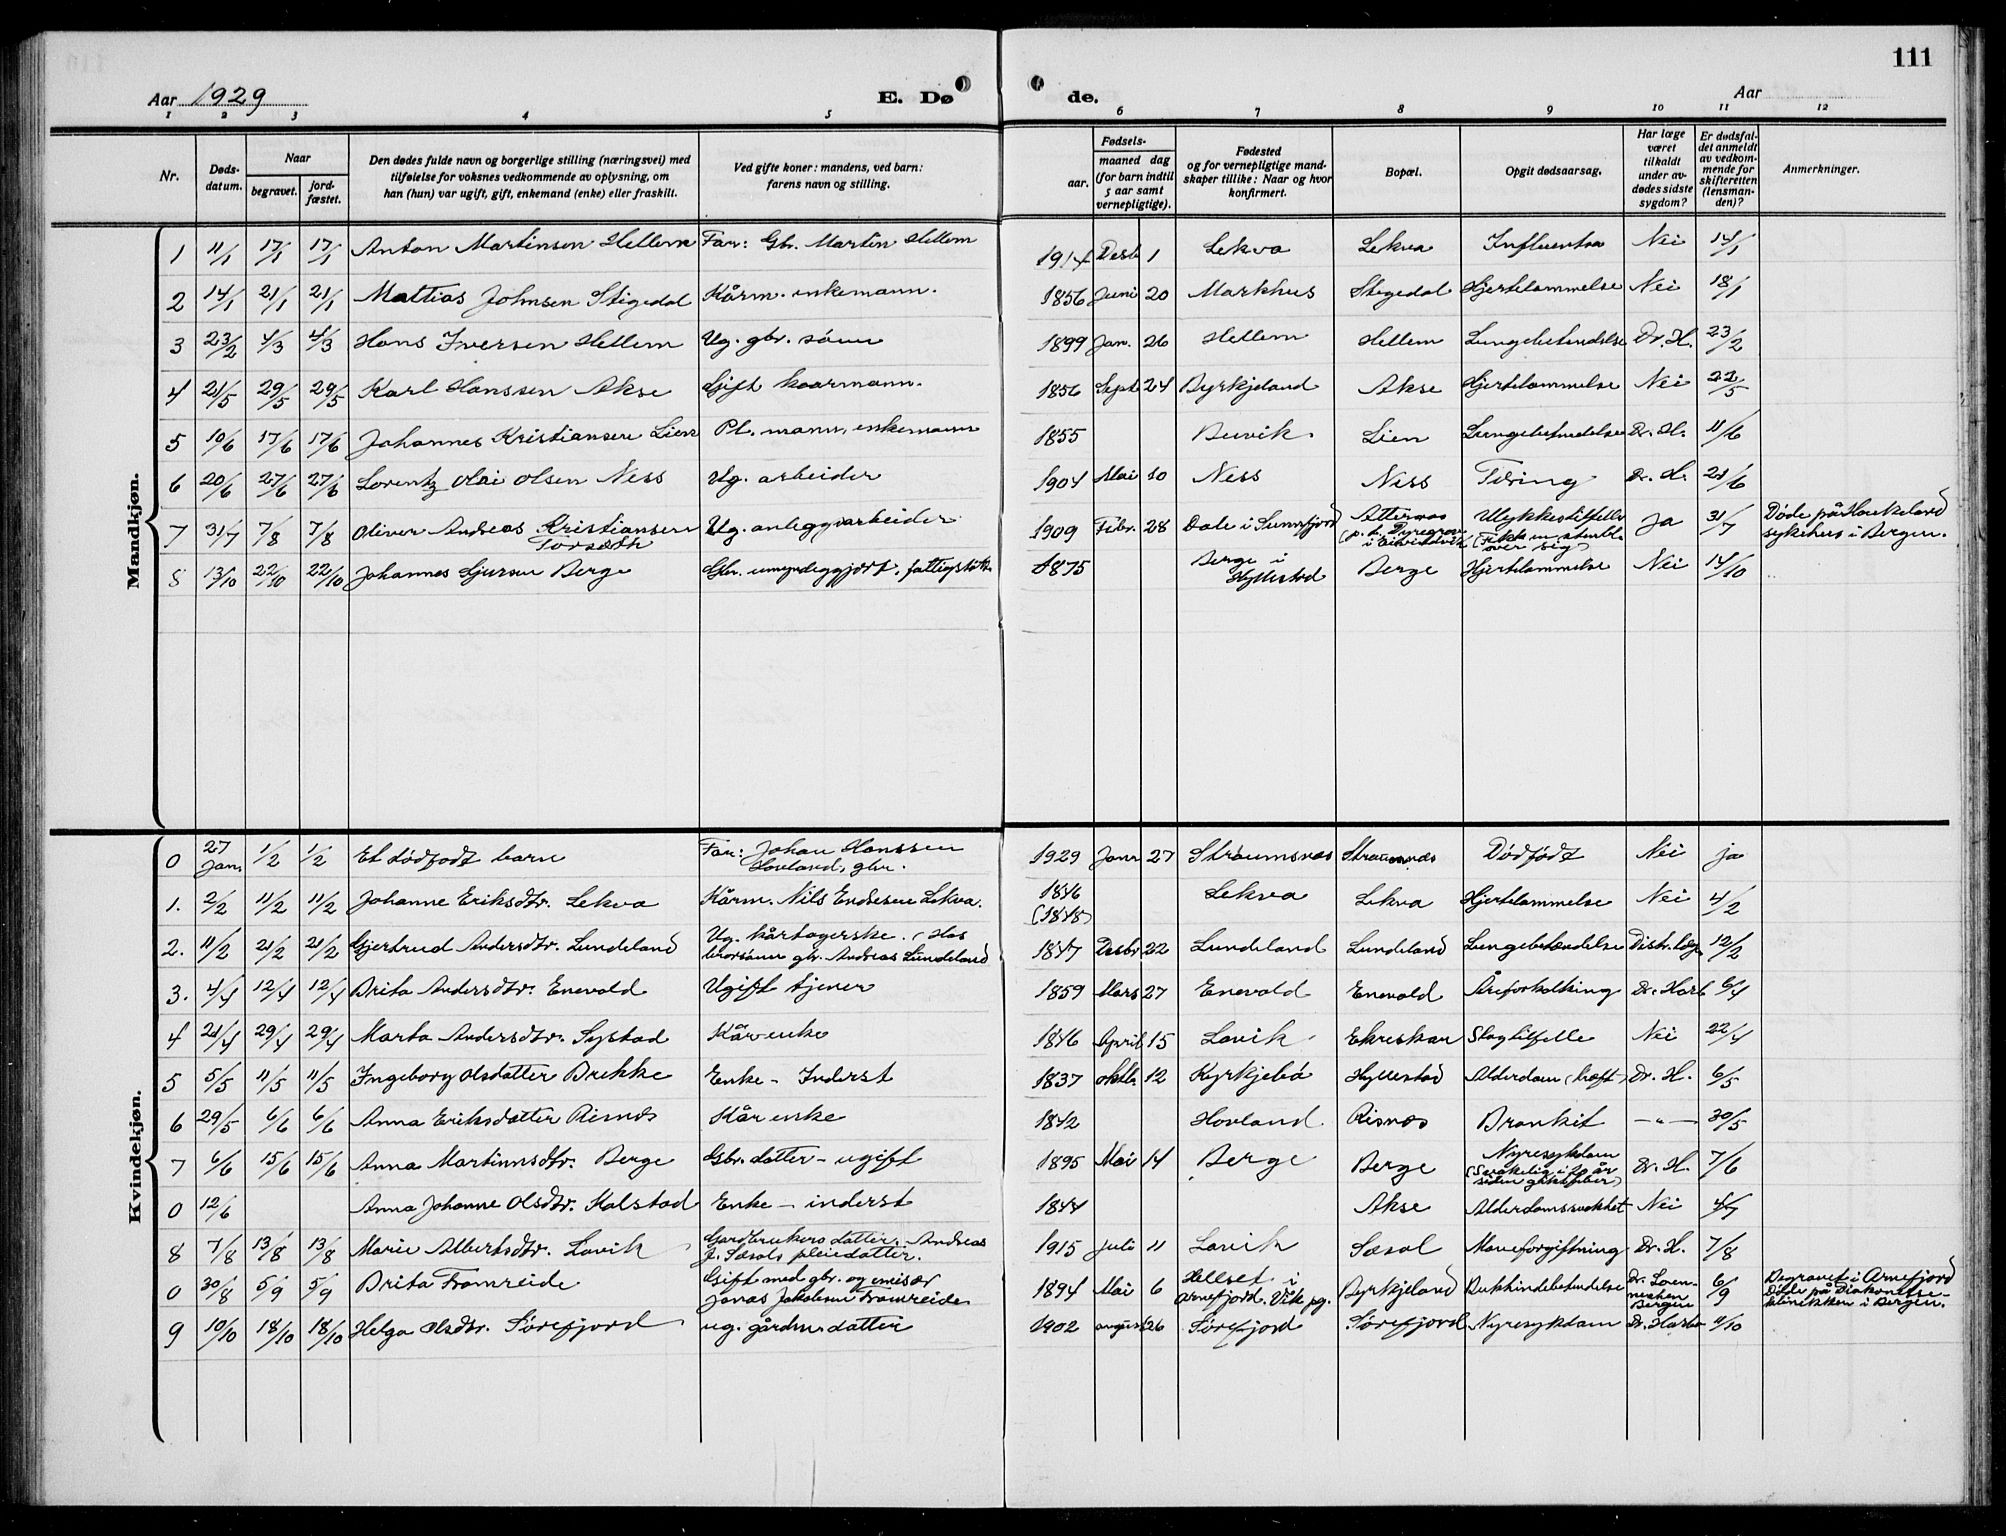 111
Aar 1929 E. Dø de. Aar
1 2 3 4 5 6 7 8 9 10 11 12
Nr. Døds-datum. Naar begravet. jord-fæstet. Den dødes fulde navn og borgerlige stilling (næringsvei) med tilføielse for voksnes vedkommende av oplysning, om han (hun) var ugift, gift, enkemand (enke) eller fraskilt. Ved gifte koner: mandens, ved barn: farens navn og stilling. Fødsels- aar. maaned dag (for barn indtil 5 aar samt vernepligtige). Fødested og for vernepligtige mand-skaper tillike: Naar og hvor konfirmert. Bopæl. Opgit dødsaarsag. Har læge været tilkaldt under av-dødes sidste sygdom? Er dødsfal-det anmeldt av vedkom-mende for skifteretten (lensman-den)? Anmerkninger.
Mandkjøn.
1 11/1 17/1 17/1 Anton Martinsen Hellem Far: Gbr. Martin Hellem 1914 Desb 1 Lekva Lekva Influentsa Nei 14/1
2 14/1 21/1 21/1 Mattias Johnsen Stigedal Kårm. enkemann. 1856 Juni 20 Markhus Stigedal Hjertelammelse Nei 18/1
3 23/2 4/3 4/3 Hans Iversen Hellem Ug. gbr. sønn 1899 Jan. 26 Hellem Hellem Lungebetendelse Dr. H. 23/2
4 21/5 29/5 29/5 Karl Hanssen Akse Gift kaarmann. 1856 Sept 24 Byrkjeland Akse Hjertelammelse Nei 22/5
5 10/6 17/6 17/6 Johannes Kristiansen Lien Pl. mann, enkemann 1855 Buvik Lien Lungebetendelse Dr. H. 11/6
6 20/6 27/6 27/6 Lorentz Olai Olsen Ness Ug. arbeider 1904 Mai 10 Ness Ness Tæring Dr. H. 21/6
7 31/7 7/8 7/8 Oliver Andreas Kristiansen Torseth Ug. anleggsarbeider 1909 Febr. 28 Dale i Sunnfjord i Eivindvik Ulykkestilfelle over sig) Ja 31/7 Døde på Haukeland sykehus i Bergen.
8 13/10 22/10 22/10 Johannes Sjursen Berge Gbr. umyndeggjort, fattigstøtte 1875 Berge i Hyllestad Berge Hjertelammelse Nei 14/10
Kvindekjøn.
0 27 Jan. 1/2 1/2 Et dødfødt barn Far: Johan Hanssen Hovland, gbr. 1929 Janr 27 Straumsnæs Straumsnæs Dødfødt Nei ja
1. 2/2 11/2 11/2 Johanne Eriksdtr. Lekva Kårm. Nils Endresen Lekva. 1846 (1848) Lekva Lekva Hjertelammelse Nei 4/2
2. 11/2 21/2 21/2 Gjertrud Andersdtr. Lundeland Ug. kårtagerske. (Hos brorsønn gbr. Andreas Lundeland 1847 Desbr 22 Lundeland Lundeland Lungebetændelse Distr. læge 12/2
3. 4/4 12/4 12/4 Brita Andersdtr. Enevold Ugift tjener 1859 Mars 27 Enevold Enevold Åreforkalkning Dr. Harb 6/4
4 21/4 29/4 29/4 Marta Andersdtr. Systad Kårenke 1846 April 15 Lavik Ekreskar Slagtilfelle Nei 22/4
5 5/5 11/5 11/5 Ingeborg Olsdatter Brekke Enke - Inderst 1837 oktb. 12 Kyrkjebø Hyllestad Alderdom (kræft) Dr. H. 6/5
6 29/5 6/6 6/6 Anna Eriksdatter Risnes Kår enke 1842 Hovland Risnes Bronkit — " — 30/5
7 6/6 15/6 15/6 Anna Martinusdtr. Berge Gbr. datter - ugift 1895 Mai 14 Berge Berge Nyresykdom (Svakelig i 20 år siden giktfeber) Dr. H. 7/6
0 12/6 Anna Johanne Olsdtr. Kolstad Enke - inderst 1844 Akse Alderdomssvakhet Nei 4/7
8 7/8 13/8 13/8 Marie Albertsdtr. Lavik Gardbrukers datter. Andreas J. Sæsols pleiedatter. 1915 Juli 11 Lavik Sæsol Maveforgiftning Dr. H. 7/8
0 30/8 5/9 5/9 Brita Framreide Gift med gbr. og emisær Jonas Jakobsen Framreide 1894 Mai 6 Hellset i Arnefjord. Vik pg. Byrkjeland Bukhindebetendelse Dr. Bergen 6/9 Begravet i Arnefjord Døde på Diakonisse-klinikken i Bergen.
9 10/10 18/10 18/10 Helga Olsdtr. Sørefjord ug. gårdm. datter 1902 august 26 Sørefjord Sørefjord Nyresykdom Dr. Harbo 11/10